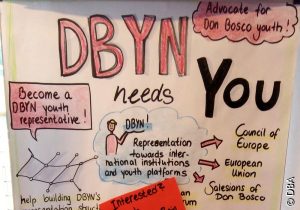 Advocate for
Don Bosco youth!
DBYN
needs
You
Become a
DBYN youth
representative!
DBYN!
Representation
towards inter-
national institutions
and youth platforms
Council of
Europe
European
Union
Salesians of
Don Bosco
help building DBYN's
Interested?
© DBA